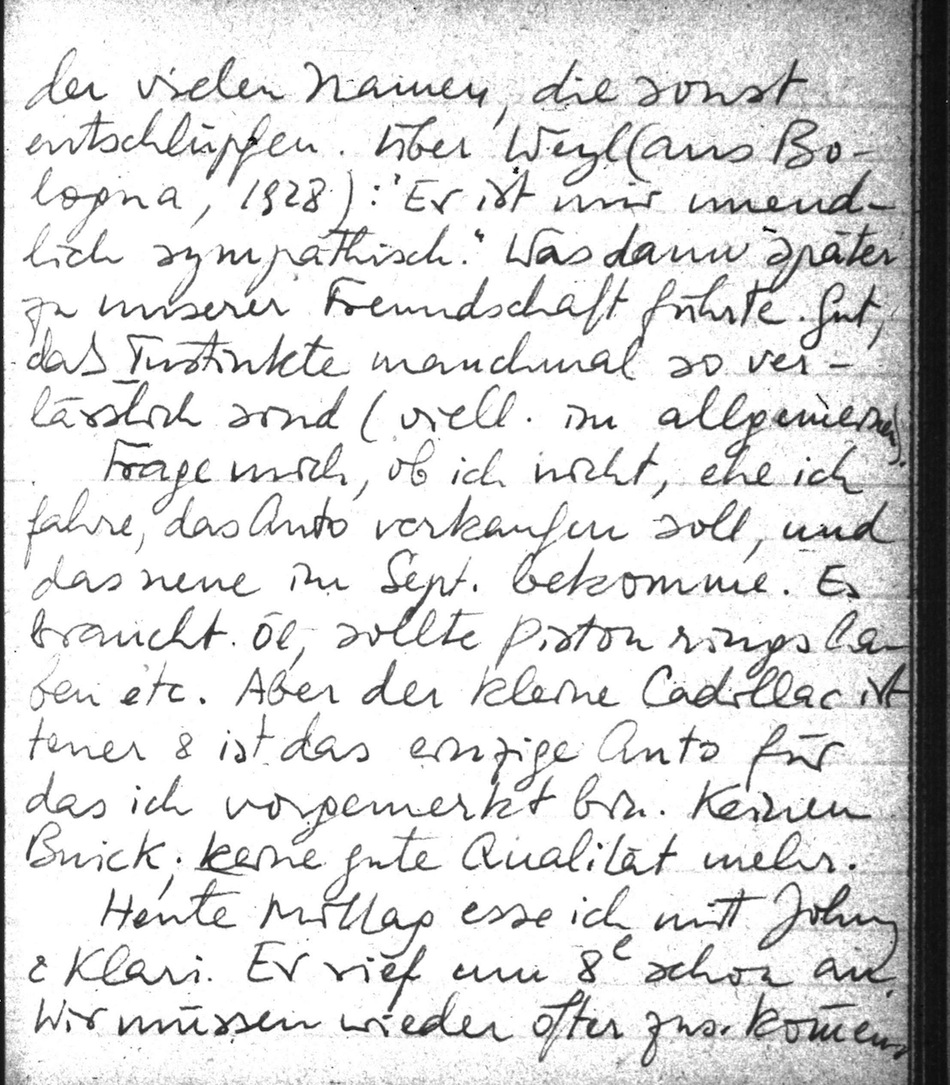 der vielen Namen, die sonst
entschlüpfen. Über Weyl (aus Bo-
logna, 1928): "Er ist mir unend-
lich sympathisch." Was dann später
zu unserer Freundschaft führte. Gut,
daß Instinkte manchmal so ver-
lässlich sind (viell. im allgemeinen).
Frage mich, ob ich nicht, ehe ich
fahre, das Auto verkaufen soll, und
das neue im Sept. bekomme. Es
braucht Öl, sollte piston rings ha-
ben etc. Aber der kleine Cadillac ist
teuer & ist das einzige Auto für
das ich vorgemerkt bin. Keinen
Buick; keine gute Qualität mehr.
Heute Mittag esse ich mit Johny
& Klari. Er rief um 8 schon an.
Wir müssen wieder öfter zus. kom̄en.